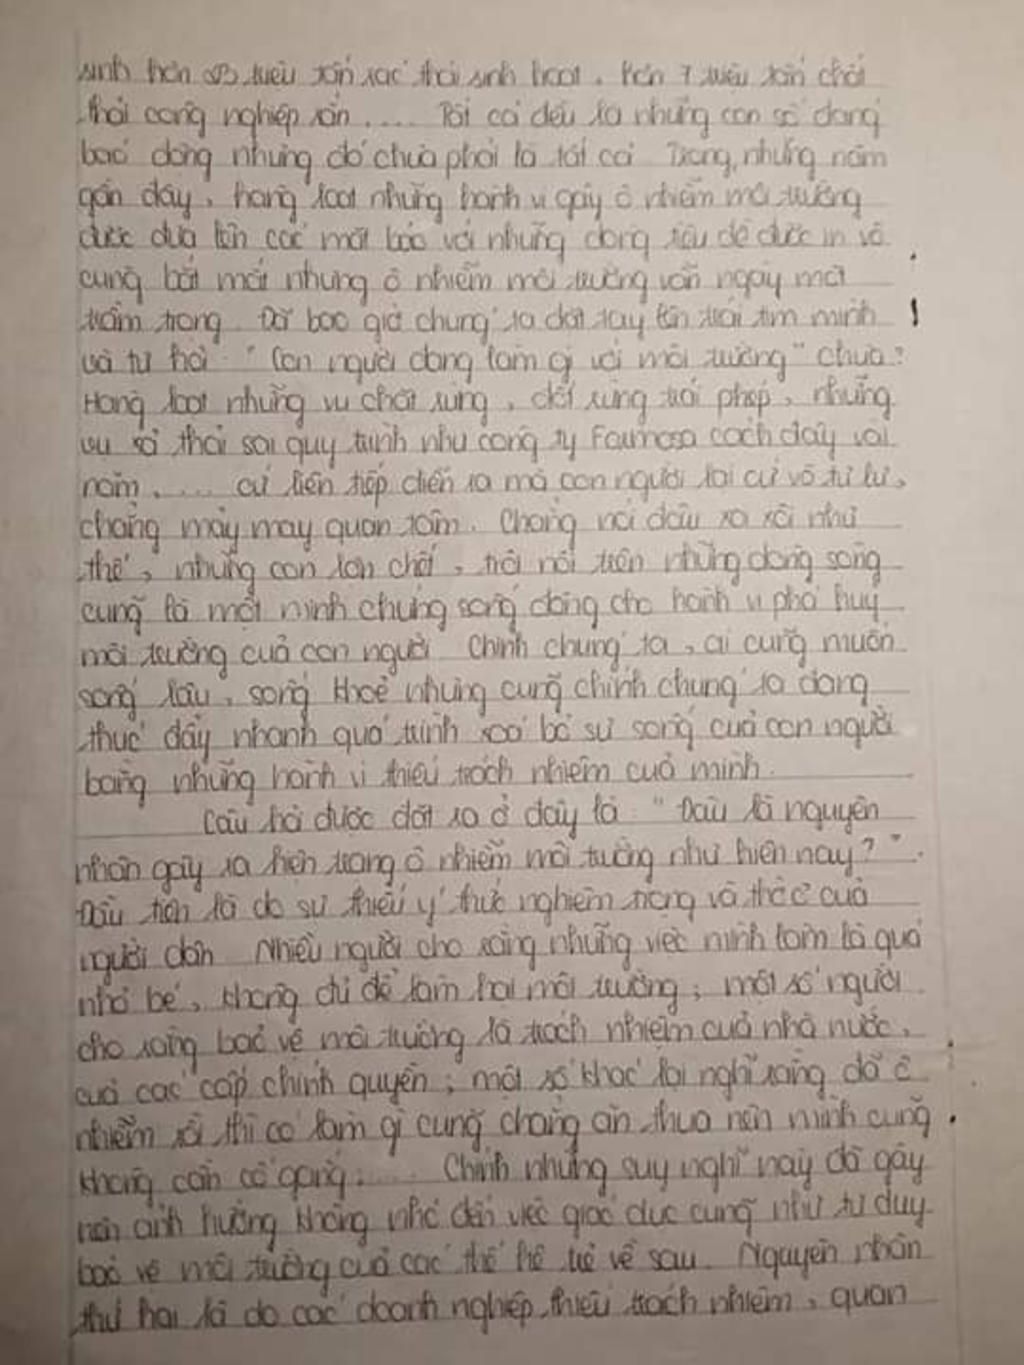 sinh hơn 23 triệu tấn rác thải sinh hoạt, hơn 7 triệu tấn chất
thải công nghiệp rắn .... Tất cả đều là những con số đáng
báo động nhưng đó chưa phải là tất cả. Trong những năm
gần đây, hàng loạt những hành vi gây ô nhiễm môi trường
được đưa lên các mặt báo với những dòng tiêu đề được in vô
cùng bắt mắt nhưng ô nhiễm môi trường vẫn ngày một
trầm trọng. Đã bao giờ chúng ta đặt tay lên trái tim mình
và tự hỏi "Con người đang làm gì với môi trường" chưa?
Hàng loạt những vụ chặt rừng, đốt rừng trái phép, những
vụ xả thải sai quy trình như công ty Formosa cách đây vài
năm, .... cứ liên tiếp diễn ra mà con người lại cứ vô tư lự,
chẳng mảy may quan tâm. Chẳng nói đâu xa xôi như
thế, những con lợn chết, trôi nổi trên những dòng sông
cũng là một minh chứng sống động cho hành vi phá huỷ
môi trường của con người. Chính chúng ta, ai cũng muốn
sống lâu, sống khoẻ nhưng cũng chính chúng ta đang
thúc đẩy nhanh quá trình xoá bỏ sự sống của con người
bằng những hành vi thiếu trách nhiệm của mình.
Câu hỏi được đặt ra ở đây là "Đâu là nguyên
nhân gây ra hiện trạng ô nhiễm môi trường như hiện nay?".
Đầu tiên là do sự thiếu ý thức nghiêm trọng và thờ ơ của
người dân. Nhiều người cho rằng những việc mình làm là quá
nhỏ bé, không đủ để làm hại môi trường; một số người
cho rằng bảo vệ môi trường là trách nhiệm của nhà nước,
của các cấp chính quyền; một số khác lại nghĩ rằng đã ô
nhiễm rồi thì có làm gì cũng chẳng ăn thua nên mình cũng
không cần cố gắng; .... Chính những suy nghĩ này đã gây
nên ảnh hưởng không nhỏ đến việc giáo dục cũng như tư duy
bảo vệ môi trường của các thế hệ trẻ về sau. Nguyên nhân
thứ hai là do các doanh nghiệp thiếu trách nhiệm, quan